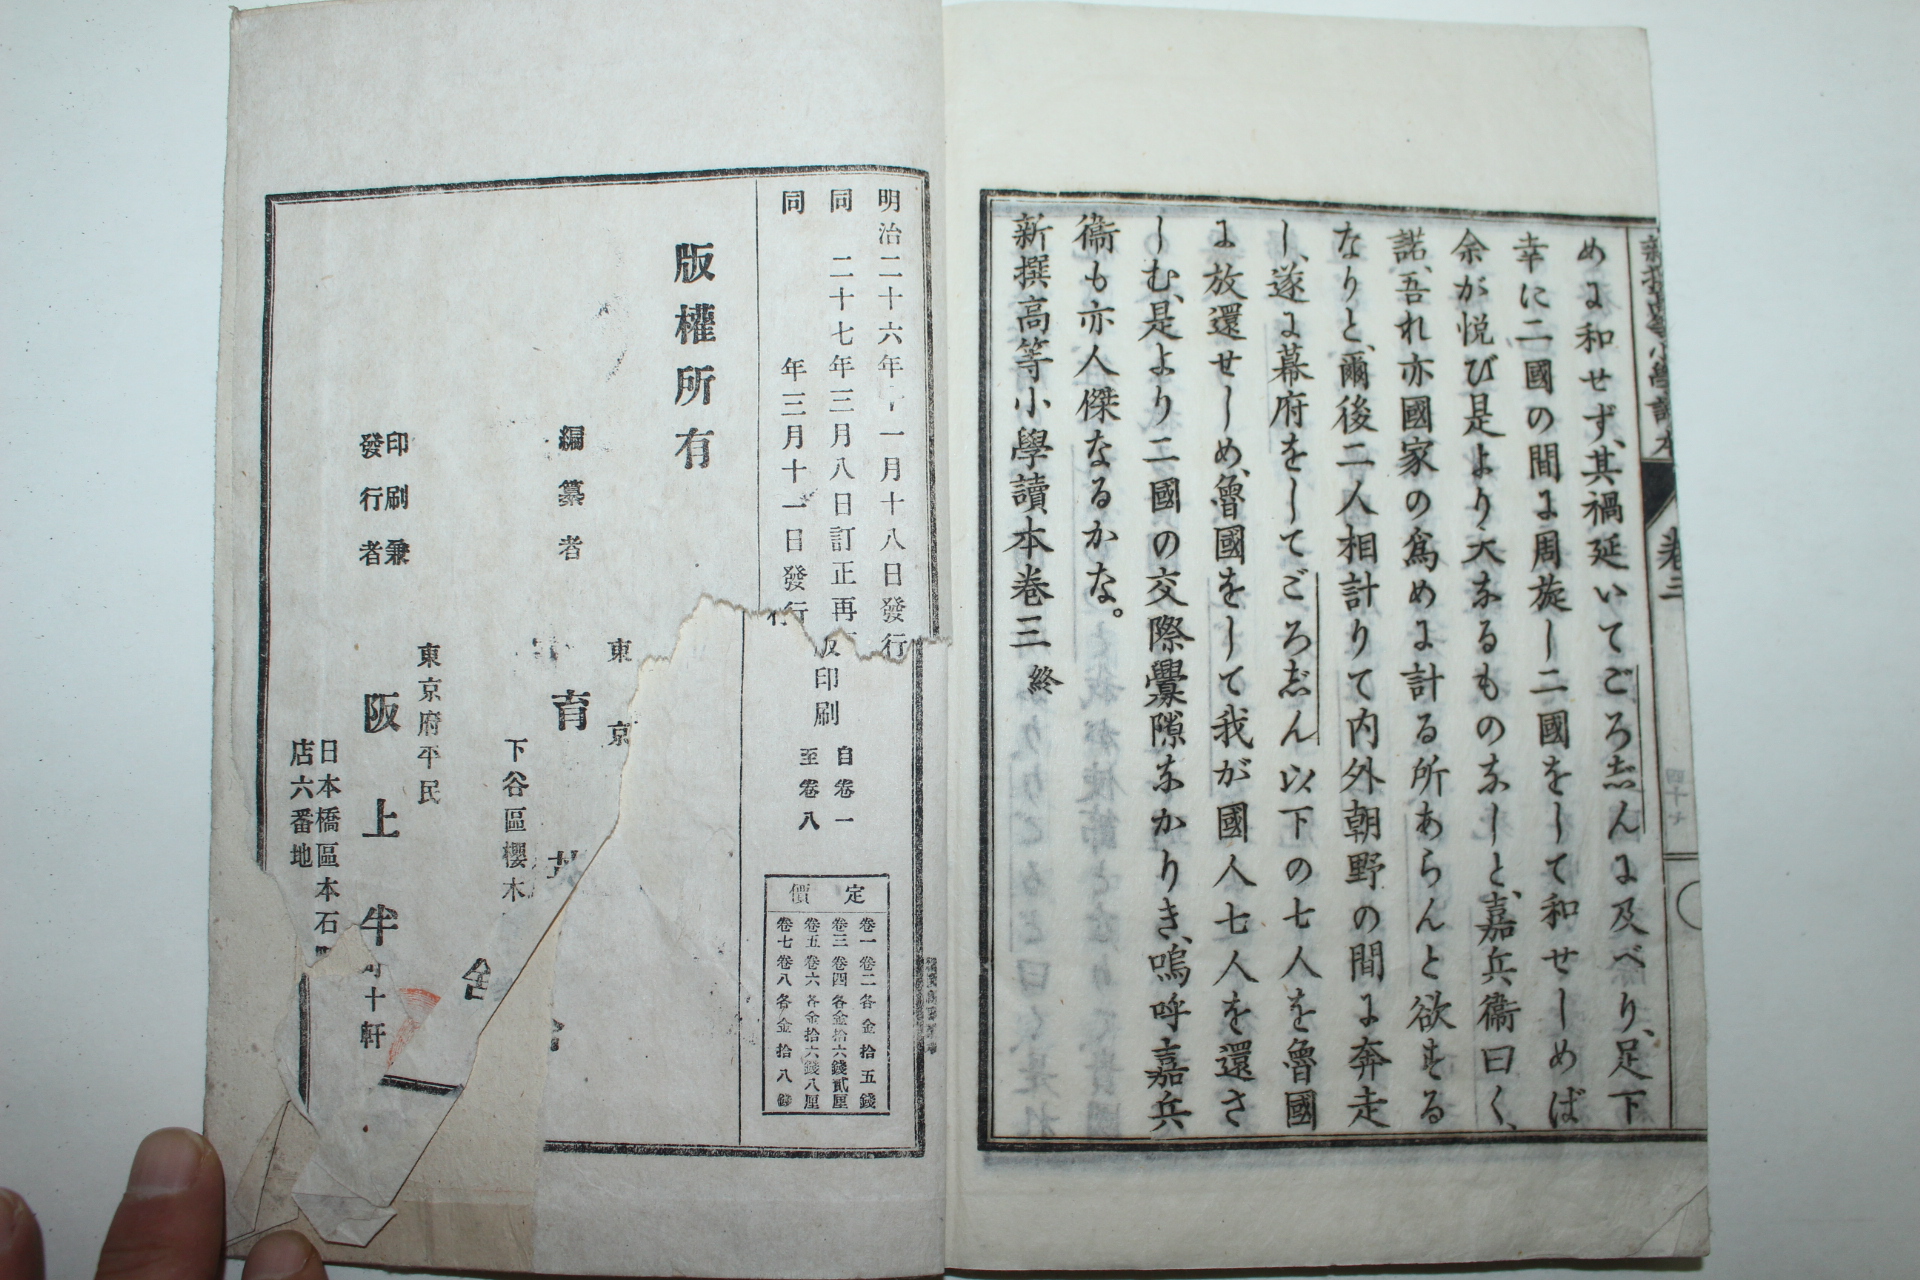 めに和せず、其禍延いてごろあんに及べり、足下
幸に二國の間に周旋し二國をして和せしめば
余が悦び是より大なるものなしと、嘉兵衞曰く、
諾、吾れ亦國家の爲めに計る所あらんと欲する
なりと、爾後二人相計りて内外朝野の間に奔走
し、遂に幕府をしてごろあん以下の七人を魯國
に放還せしめ、魯國をして我が國人七人を還さ
しむ、是より二國の交際釁隙なかりき、嗚呼嘉兵
衞も亦人傑なるかな。
新撰高等小學讀本卷三 終
卷三
明治二十六年 一月十八日發行
同 二十七年三月八日訂正再版印刷
同 年三月十一日發行
自卷一
至卷八
定價
卷一卷二各金拾五錢
卷三卷四各金拾六錢貳厘
卷五卷六各金拾六錢八厘
卷七卷八各金拾八錢
版權所有
東京
編纂者 育
下谷區櫻木
東京府平民
印刷兼
發行者 阪上半
日本橋區本石町十軒
店六番地